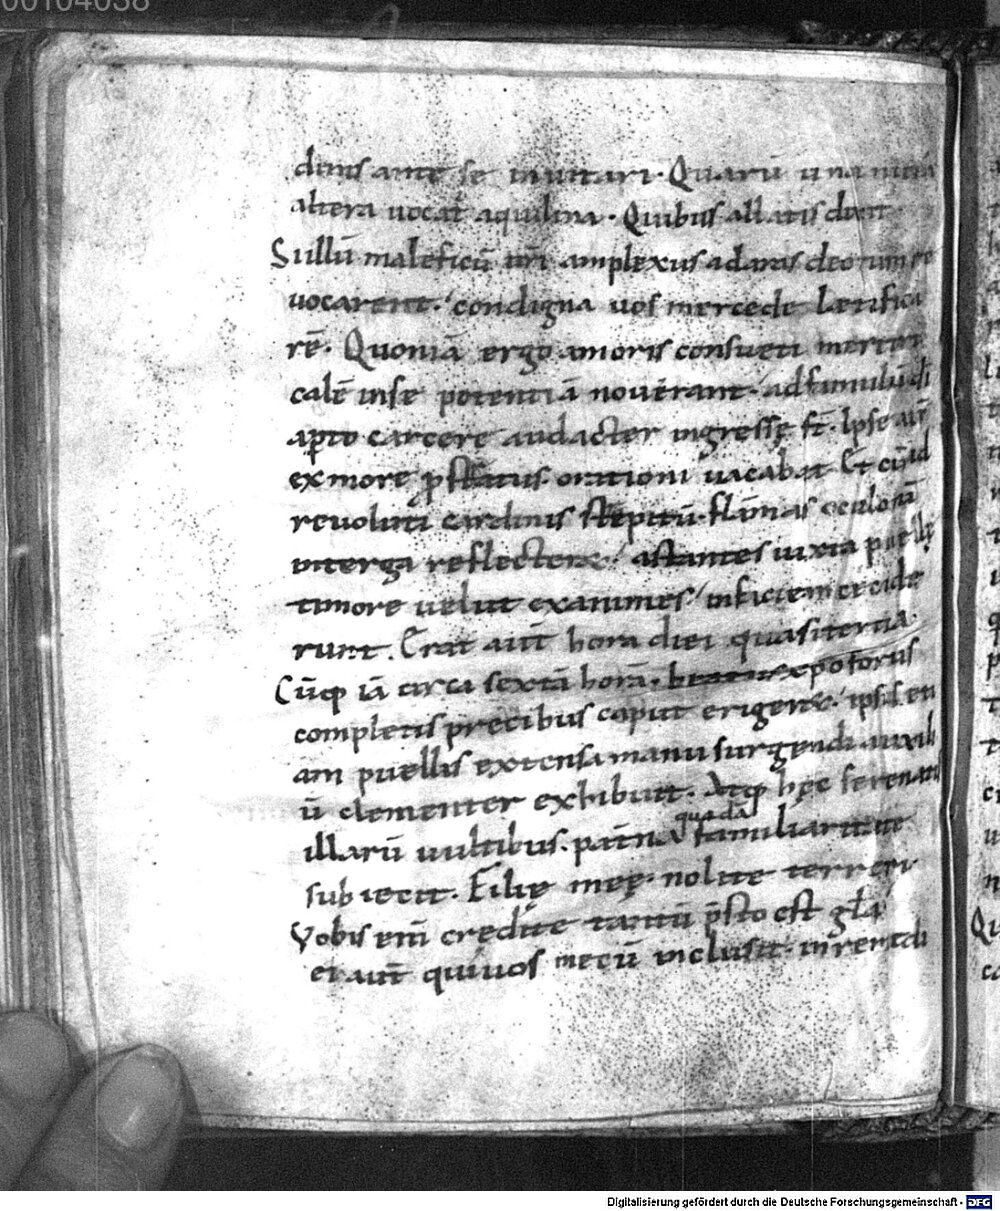 00104038
dinis ante se inuitari. Quarū una nicea
altera uocat̄ aquilina. Quibus allatis dixit
Si illū maleficū nr̄i amplexus ad aras deorum re
uocarent. condigna uos mercede letifica
rē. Quoniā ergo amoris consueti
calē inse potentiā nouerant. ad famulū di
apto carcere audacter ingressę st̄. Ipse aut̄
ex more ꝓstratus orationi uacabat. Et cū ad
reuoluti cardinis strepitū. flāmas oculorū
interga reflecteret. astantes iuxta puellę
timore uelut exanimes infaciem cecide
runt. Erat aut̄ hora diei quasi tertia.
Cūq; iā circa sextā horā. beatus xpoforus
completis precibus caput erigeret. ipsis eti
am puellis extensa manu surgendi auxili
ū clementer exhibuit. Atq; hęc
illarū uultibus. paterna quadā familiaritate
subiecit. Filię męę. nolite terreri
Vobis eni credite tantū p̄sto est gl̄a
ei aut̄ qui uos mecū inclusit.
Digitalisierung gefördert durch die Deutsche Forschungsgemeinschaft - DFG